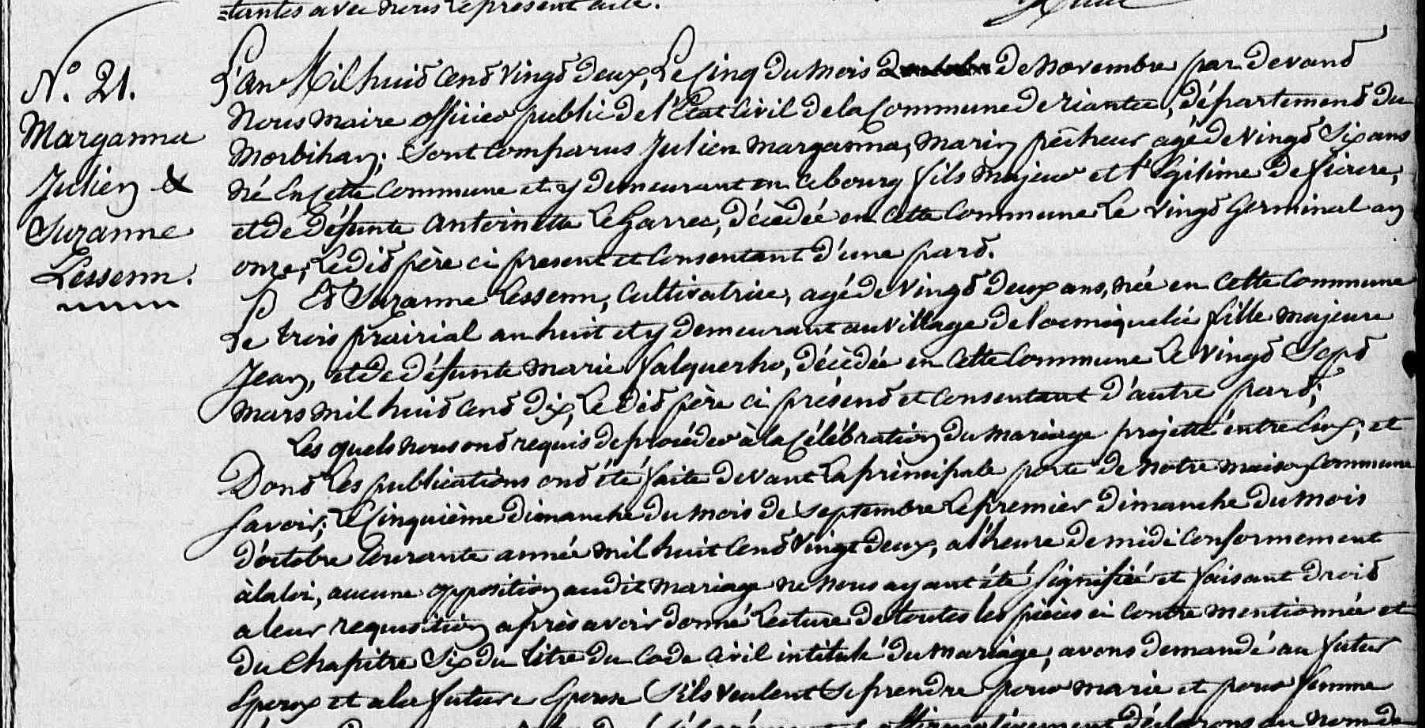 tantes avec nous le present acte.
N.° 21.
Marganna
Julien &
Suzanne
Lessenn.
L'an Mil huit cent vingt deux, le cinq du mois de novembre par devant
nous maire officier public de l'Etat Civil de la Commune de riantec, département du
Morbihan; sont comparus Julien marganna, marin pêcheur agé de vingt six ans
né en cette commune et y demeurant en ce bourg fils majeur et légitime de pierre,
et de défunte antoinette Le Garrec, décèdée en cette commune le vingt Germinal an
onze, le dit père ci present et consentant d'une part.
Et Suzanne Lessenn, cultivatrice, agé de vingt deux ans, née en cette commune
le trois prairial an huit et y demeurant au village de locmiquelic fille majeure
Jean, et de défunte marie falquerho, décèdée en cette commune le vingt sept
mars mil huit cent dix, le dit père ci présent et consentant d'autre part;
Les quels nous ont requis de procéder à la célébration du mariage projetté entre Eux; et
Dont les publications ont été faite devant la principale porte de notre maison commune
savoir; le cinquième dimanche du mois de septembre le premier dimanche du mois
d'octobre courante année mil huit cent vingt deux, a l'heure de midi conformement
à la loi, aucune opposition au dit mariage ne nous ayant été signifiée et faisant droit
a leur requisition après avoir donné lecture de toutes les pièces ci contre mentionnée et
du Chapitre six du titre du code civil intitulé du mariage, avons demandé au futur
Epoux et a la future Epouse s'ils veulent se prendre pour marie et pour femme